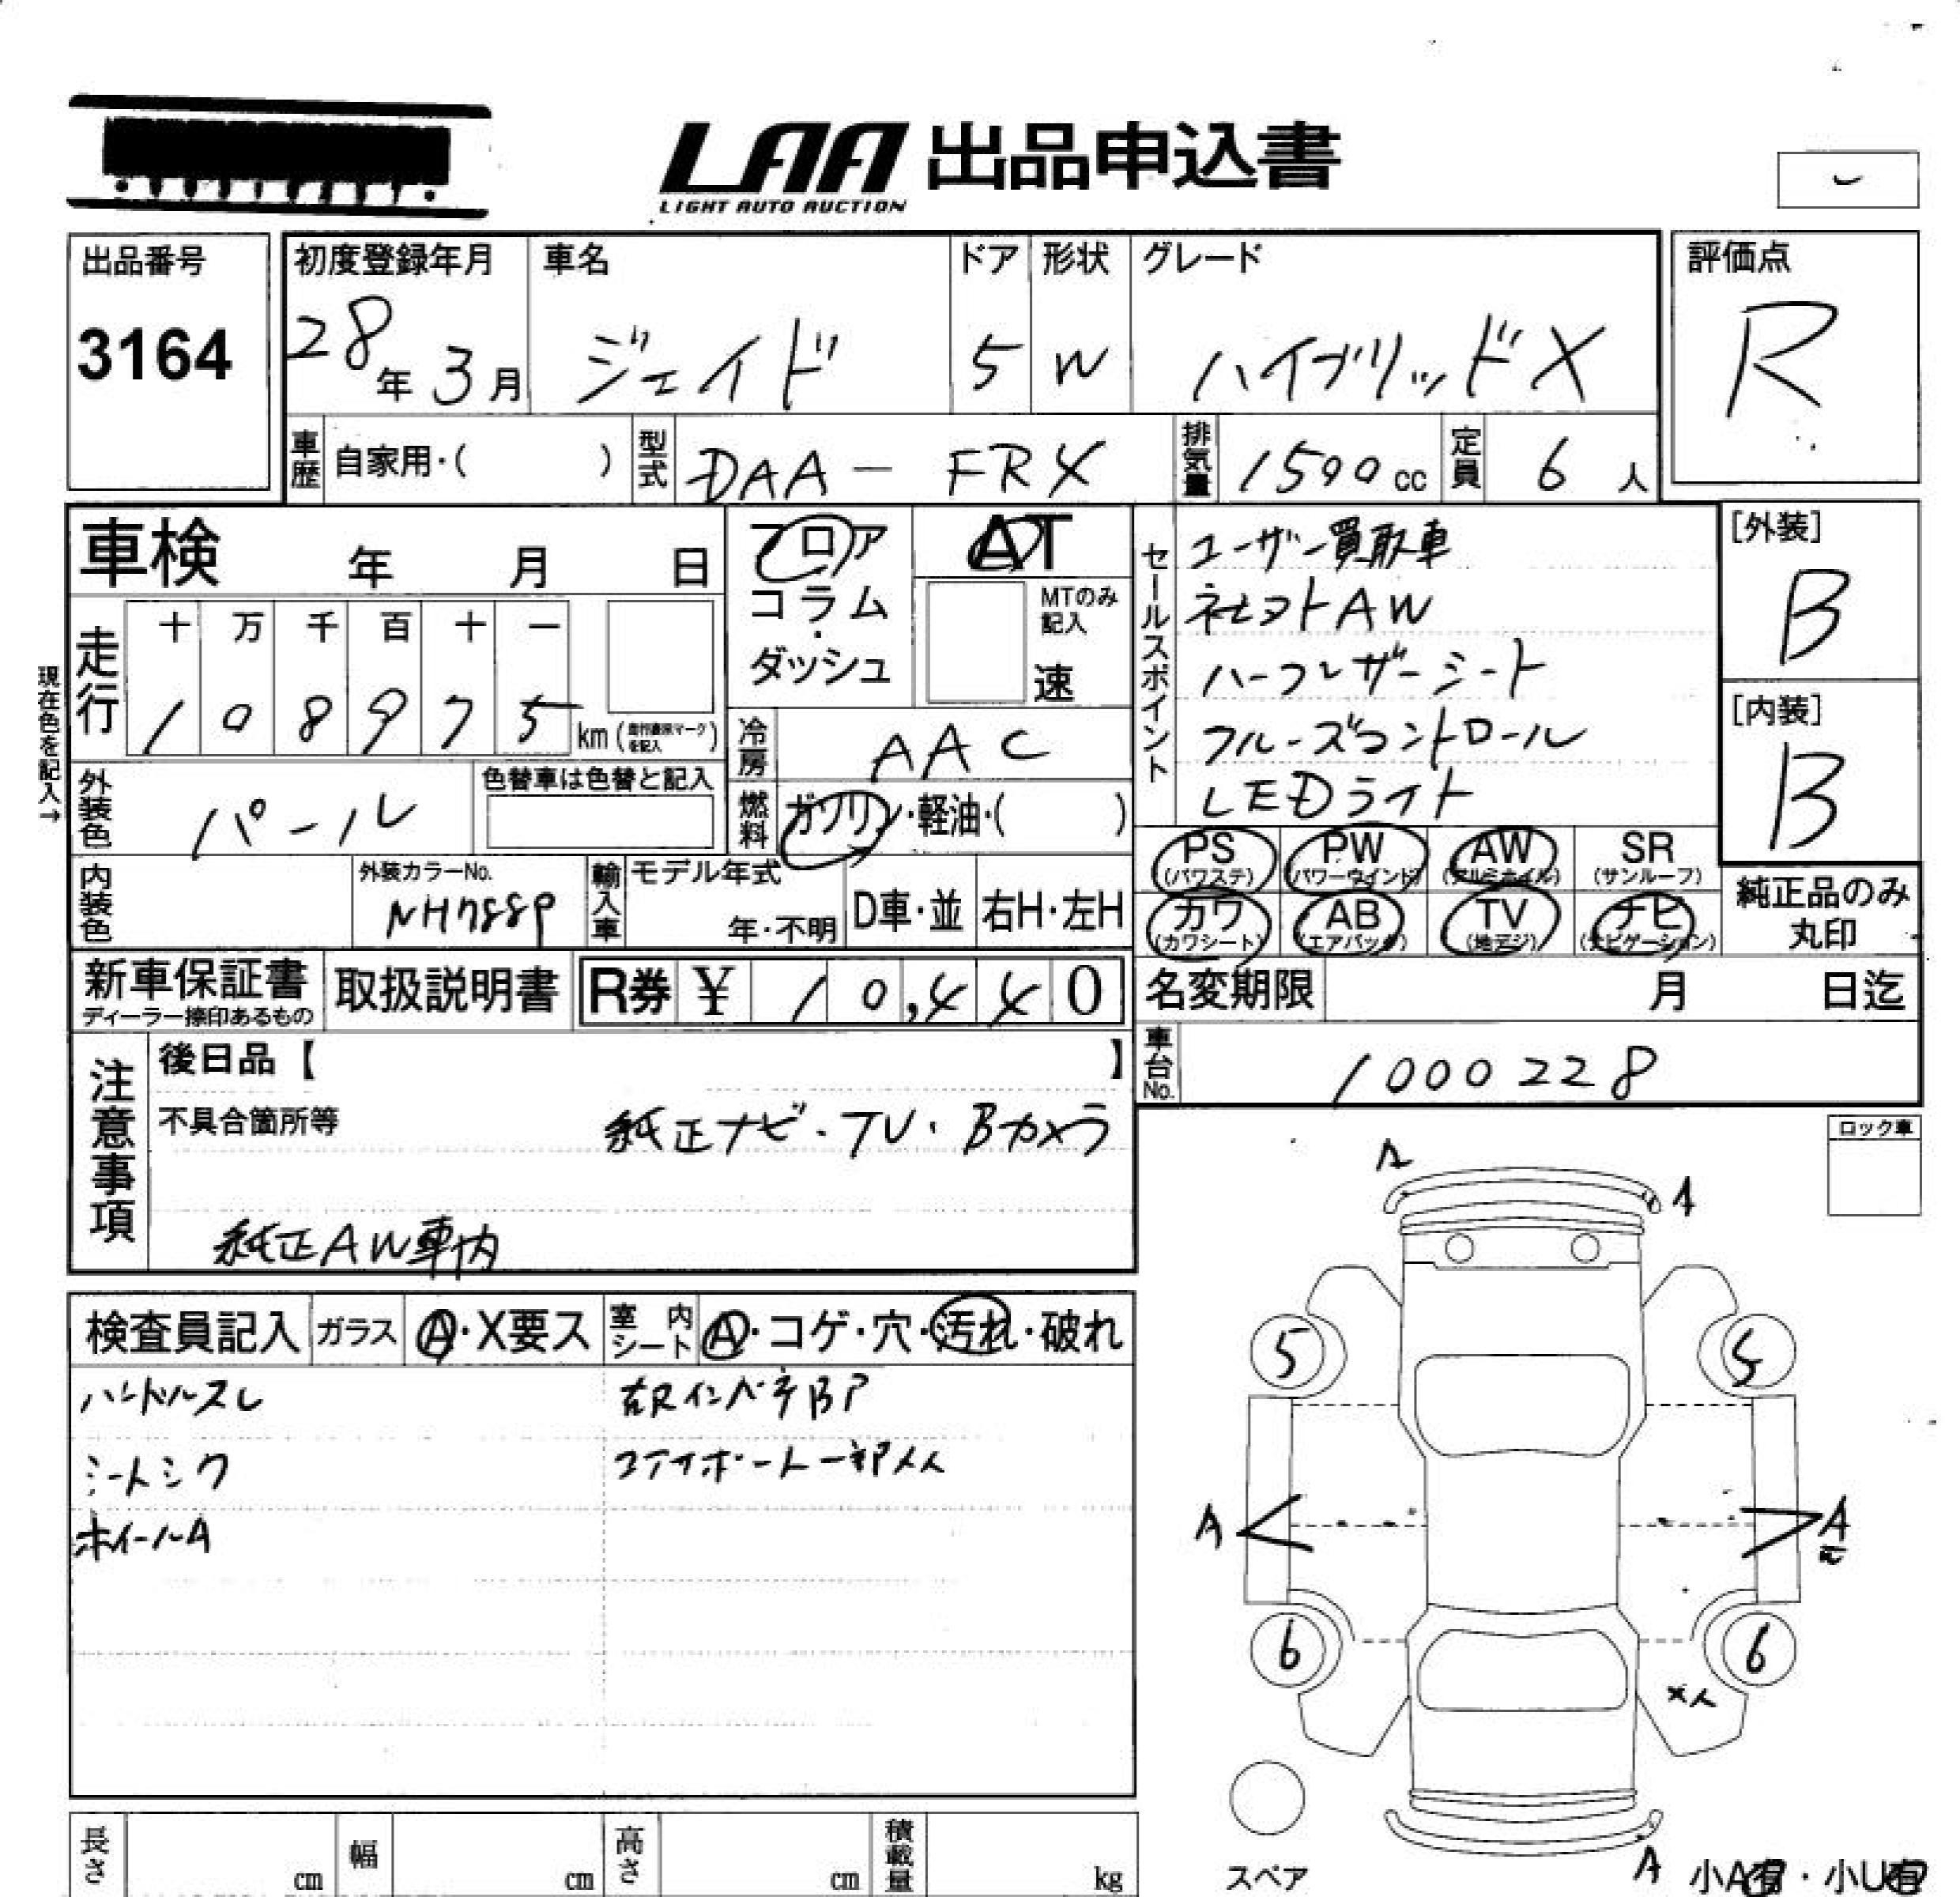 LAA 出品申込書
LIGHT AUTO AUCTION
出品番号
3164
初度登録年月
28年 3月
車名
ジェイド
ドア
5
形状
W
グレード
ハイブリッドX
評価点
R
車歴 自家用・( )
型式 DAA-FRX
排気量 1500cc
定員 6人
車検 年 月 日
走行
十 万 千 百 十 一
1 0 8 9 7 5 km
現在色を記入→
フロア
コラム
・
ダッシュ
AT
MTのみ記入
速
冷房 AAC
燃料 ガソリン・軽油・( )
セールスポイント
ユーザー買取車
社外AW
ハーフレザーシート
クルーズコントロール
LEDライト
[外装]
B
[内装]
B
外装色 パール
色替車は色替と記入
内装色
外装カラーNo.
NH788P
輸入車
モデル年式
年・不明
D車・並
右H・左H
PS (パワステ)
PW (パワーウインド)
AW (アルミホイル)
SR (サンルーフ)
カワ (カワシート)
AB (エアバック)
TV (地デジ)
ナビ (ナビゲーション)
純正品のみ
丸印
新車保証書
ディーラー捺印あるもの
取扱説明書
R券 ¥ 10,440
名変期限 月 日迄
車台No. 1000228
注意事項
後日品【 】
不具合箇所等
純正ナビ・TV・Bカメラ
純正AW車内
ロック車
検査員記入
ガラス A・X要ス
室内シート A・コゲ・穴・汚れ・破れ
ハンドルスレ
シートシワ
ホイールA
A
A
5
5
A
A
6
6
A
スペア
小A有・小U有
長さ cm
幅 cm
高さ cm
積載量 kg